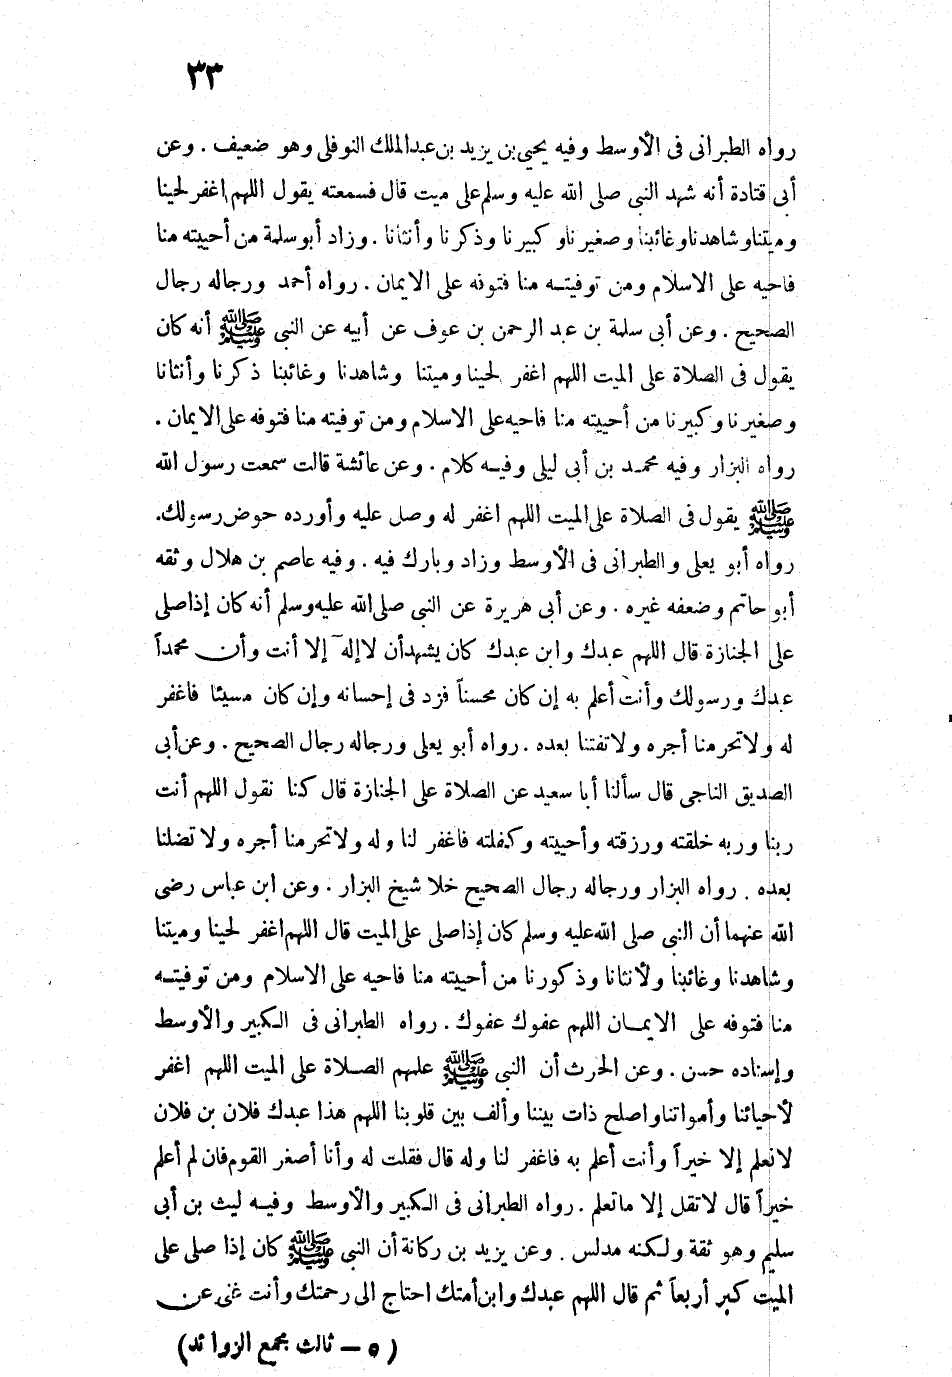 ٣٣
رواه الطبرانى فى الأوسط وفيه يحيى بن يزيد بن عبدالملك النوفلى وهو ضعيف . وعن
أبى قتادة أنه شهد النبى صلى الله عليه وسلم على ميت قال فسمعته يقول اللهم اغفر لحينا
وميتنا وشاهدنا وغائبنا وصغيرنا وكبيرنا وذكرنا وأنثانا . وزاد أبو سلمة من أحييته منا
فاحيه على الاسلام ومن توفيتـه منا فتوفه على الايمان . رواه أحمد ورجاله رجال
الصحيح . وعن أبى سلمة بن عبد الرحمن بن عوف عن أبيه عن النبى ﷺ أنه كان
يقول فى الصلاة على الميت اللهم اغفر لحينا وميتنا وشاهدنا وغائبنا ذكرنا وأنثانا
وصغيرنا وكبيرنا من أحييته منا فاحيه على الاسلام ومن توفيته منا فتوفه على الايمان .
رواه البزار وفيه محمـد بن أبى ليلى وفيـه كلام . وعن عائشة قالت سمعت رسول الله
ﷺ يقول فى الصلاة على الميت اللهم اغفر له وصل عليه وأورده حوض رسولك.
رواه أبو يعلى والطبرانى فى الأوسط وزاد وبارك فيه . وفيه عاصم بن هلال وثقه
أبو حاتم وضعفه غيره . وعن أبى هريرة عن النبى صلى الله عليه وسلم أنه كان إذا صلى
على الجنازة قال اللهم عبدك وابن عبدك كان يشهد أن لا إله إلا أنت وأن محمداً
عبدك ورسولك وأنت أعلم به إن كان محسناً فزد فى إحسانه وإن كان مسيئا فاغفر
له ولا تحرمنا أجره ولا تفتنا بعده . رواه أبو يعلى ورجاله رجال الصحيح . وعن أبى
الصديق الناجى قال سألنا أبا سعيد عن الصلاة على الجنازة قال كنا نقول اللهم أنت
ربنا وربه خلقته ورزقته وأحييته وكفلته فاغفر لنا وله ولا تحرمنا أجره ولا تضلنا
بعده . رواه البزار ورجاله رجال الصحيح خلا شيخ البزار . وعن ابن عباس رضى
الله عنهما أن النبى صلى الله عليه وسلم كان إذا صلى على الميت قال اللهم اغفر لحينا وميتنا
وشاهدنا وغائبنا ولأنثانا وذكورنا من أحييته منا فاحيه على الاسلام ومن توفيتـه
منا فتوفه على الايمـان اللهم عفوك عفوك . رواه الطبرانى فى الكبير والأوسط
وإسناده حسن . وعن الحرث أن النبى ﷺ علمهم الصـلاة على الميت اللهم اغفر
لأحيائنا وأمواتنا واصلح ذات بيننا وألف بين قلوبنا اللهم هذا عبدك فلان بن فلان
لا نعلم إلا خيراً وأنت أعلم به فاغفر لنا وله قال فقلت له وأنا أصغر القوم فان لم أعلم
خيراً قال لا تقل إلا ما تعلم . رواه الطبرانى فى الكبير والأوسط وفيـه ليث بن أبى
سليم وهو ثقة ولكنه مدلس . وعن يزيد بن ركانة أن النبى ﷺ كان إذا صلى على
الميت كبر أربعاً ثم قال اللهم عبدك وابن أمتك احتاج الى رحمتك وأنت غنى عن
( ٥ — ثالث مجمع الزوائد )